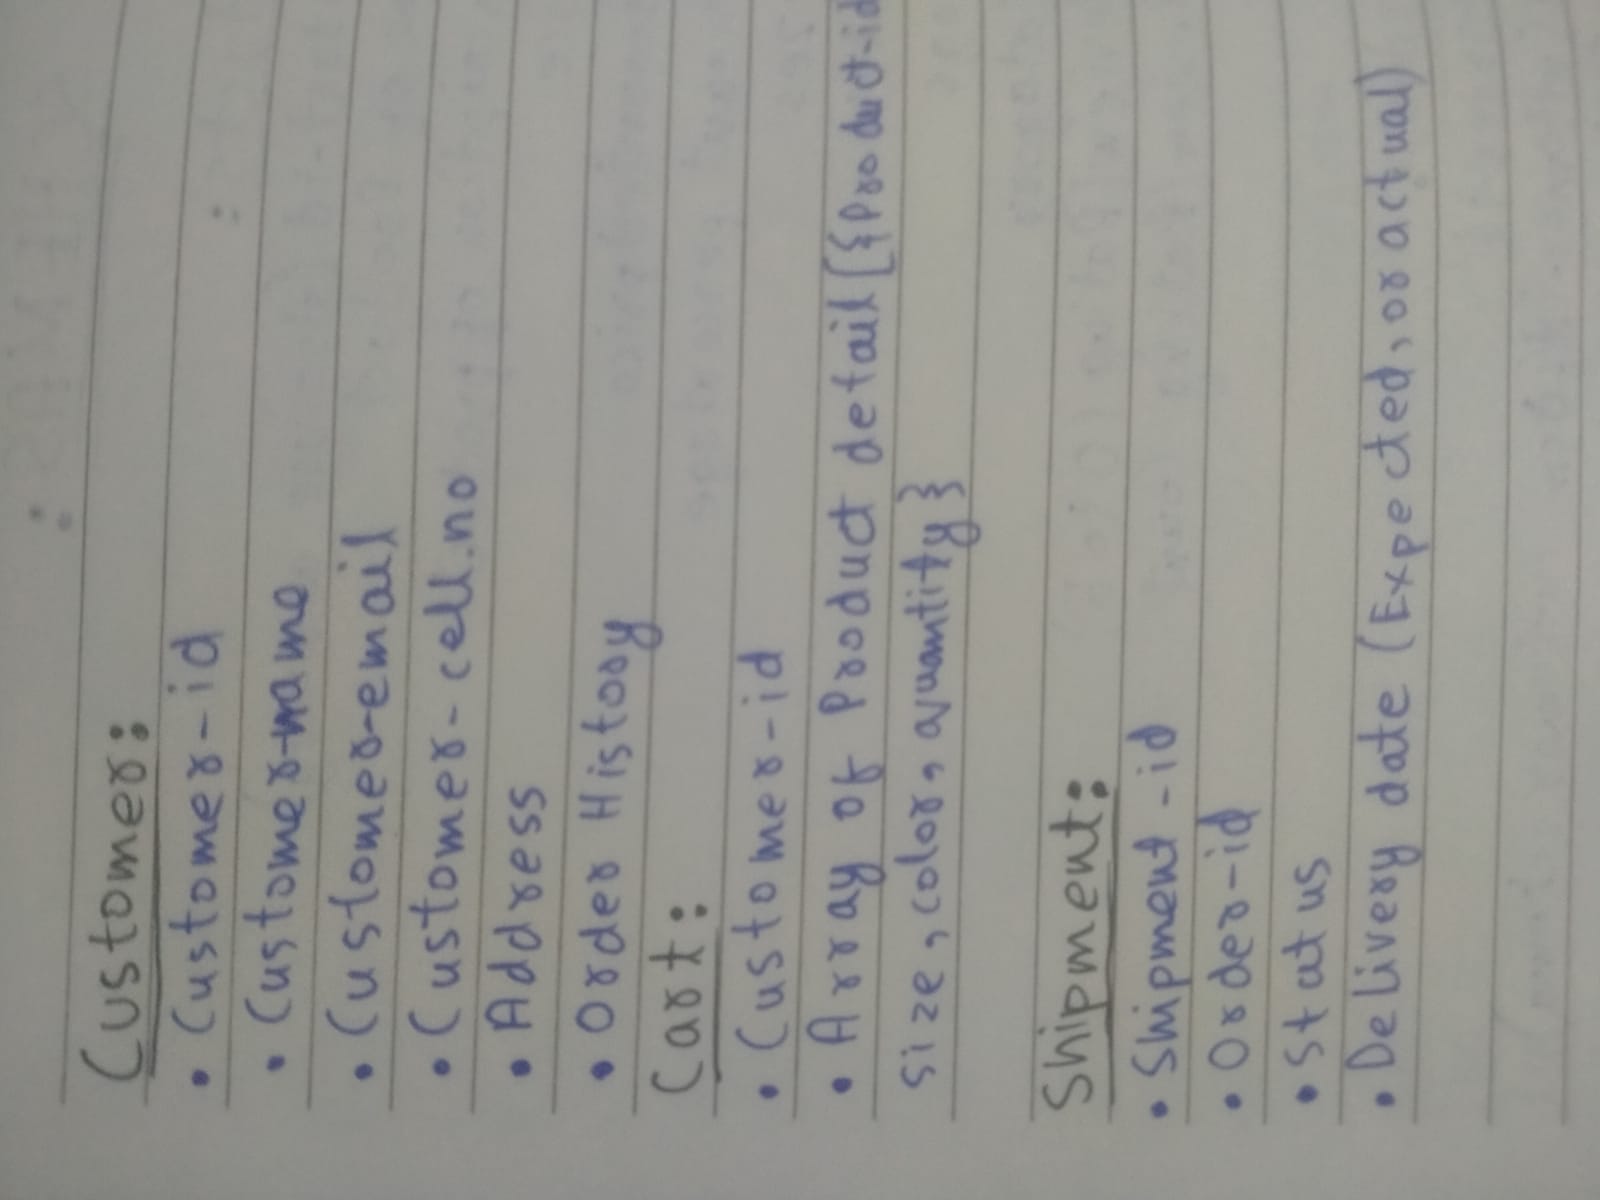 Customer:
• Customer-id
• Customer-name
• Customer-email
• Customer-cell.no
• Address
• Order History
Cart:
• Customer-id
• Array of Product detail [{Product-id
size, color, quantity}
Shipment:
• Shipment-id
• Order-id
• Status
• Delivery date (Expected, or actual)